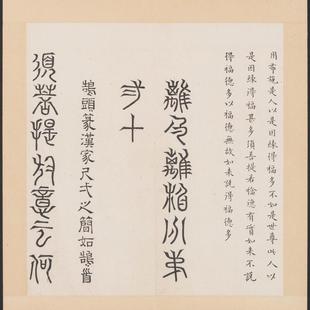 用布施是人以是因緣得福多不如是世尊此人以
是因緣得福甚多須菩提若福德有實如來不說
得福德多以福德無故如來說得福德多
離色離相分第
弍十
鵠頭篆漢家尺弌之簡如鵠首
須菩提於意云何